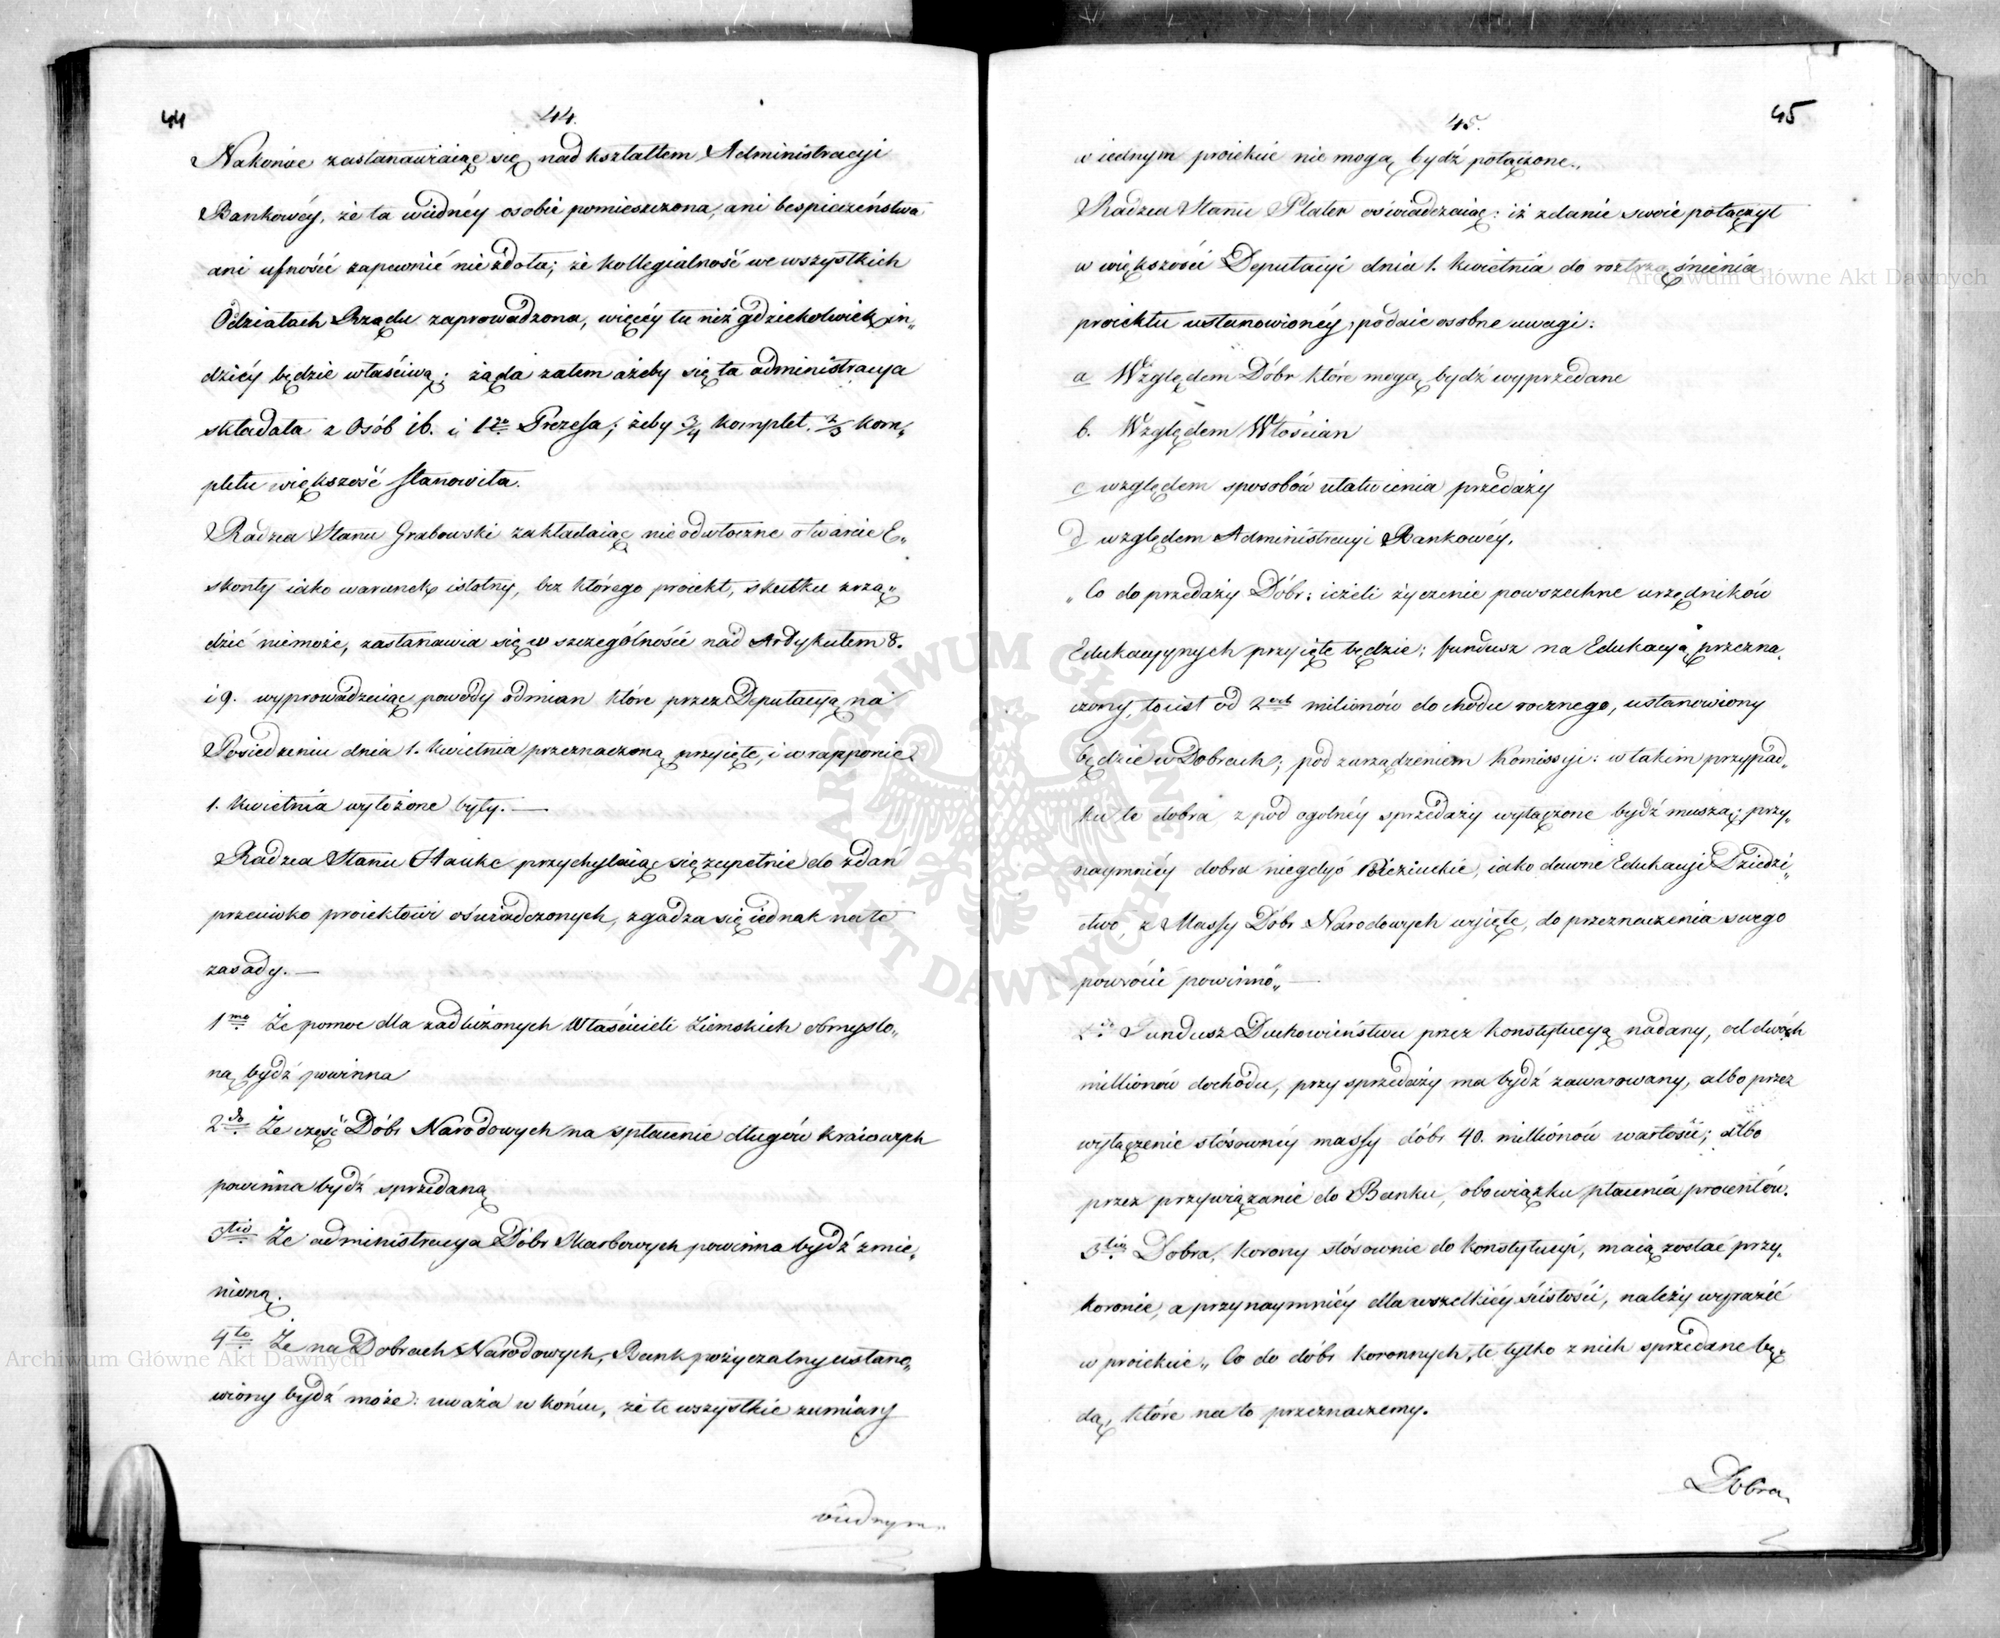 44
44.
Nakoniec zastanawiaiąc się nad kształtem Administracyi
Bankowéy, że ta w iednéy osobie pomieszczona, ani bespieczeństwa
ani ufność zapewnić nie zdoła; że kollegialność we wszystkich
Odziałach Rządu zaprowadzona, więcéy tu niż gdziekolwiek in„
dziéy będzie właściwą; żąda zatem ażeby się ta administracya
składała z Osób 16. i 1go Prezesa; żeby 3/4 komplet, 2/3 kom„
pletu większość stanowiła.
Radzca Stanu Grabowski zakładaiąc nieodwłoczne otwarcie E„
skonty iako warunek istotny, bez którego proiekt, skutku zrzą„
dzić niemoże, zastanawia się w szczególności nad Artykułem 8.
i 9. wyprowadzaiąc powody odmian które przez Deputacyą na
Posiedzeniu dnia 1. Kwietnia przeznaczoną przyięte, i w rapporcie
1. Kwietnia wyłożone były. —
Radzca Stanu Hauke przychylaiąc się zupełnie do zdań
przeciwko proiektowi oświadczonych, zgadza się iednak na te
zasady. —
1mo Że pomoc dla zadłużonych Właścicieli Ziemskich obmyślo„
ną bydź powinna
2do Że część Dóbr Narodowych na spłacenie długów kraiowych
powinna bydź sprzedaną
3tio Że administracya Dóbr Skarbowych powinna bydź zmie„
nioną.
4to Że na Dobrach Narodowych, Bank pożyczalny ustano„
wiony bydź może: uważa w końcu, że te wszystkie zamiary
w iednym„
45
45.
w iednym proiekcie nie mogą bydź połączone„
Radzca Stanu Plater oświadczaiąc: iż zdanie swoie połączył
w większości Deputacyi dnia 1. Kwietnia do roztrząśnienia
proiektu ustanowionéy, podaie osobne uwagi:
a Względem Dóbr które mogą bydź wyprzedane
b. Względem Włościan
c względem sposobów ułatwienia przedaży
d względem Administracyi Bankowéy.
„Co do przedaży Dóbr: ieżeli życzenie powszechne urzędników
Edukacyynych przyięte będzie; fundusz na Edukacyą przezna„
czony, to iest od 2och milionów dochodu rocznego, ustanowiony
będzie w Dobrach; pod zarządzeniem Komissyi: w takim przypad„
ku te dobra z pod ogolnéy sprzedaży wyłączone bydź muszą; przy„
naymniéy dobra niegdyś iako dawne Edukacyi Dziedzi„
ctwo, z Massy Dóbr Narodowych wyięte, do przeznaczenia swego
powrócić powinno„ —
2do Fundusz Duchowieństwu przez Konstytucyą nadany, od dwóch
millionów dochodu, przy sprzedaży ma bydź zawarowany, albo przez
wyłączenie stósownéy massy dóbr 40. millionów wartości; albo
przez przywiązanie do Banku, obowiązku płacenia procentów.
3tio Dobra, Korony stósownie do Konstytucyi, maią zostać przy„
Koronie, a przynaymniéy dla wszelkiéy ścisłości, należy wyrazić
w proiekcie„ Co do dóbr koronnych, te tylko z nich sprzedane bę„
dą, które na to przeznaczemy.
Dobra,
Archiwum Główne Akt Dawnych
Archiwum Główne Akt Dawnych
ARCHIWUM GŁÓWNE AKT DAWNYCH